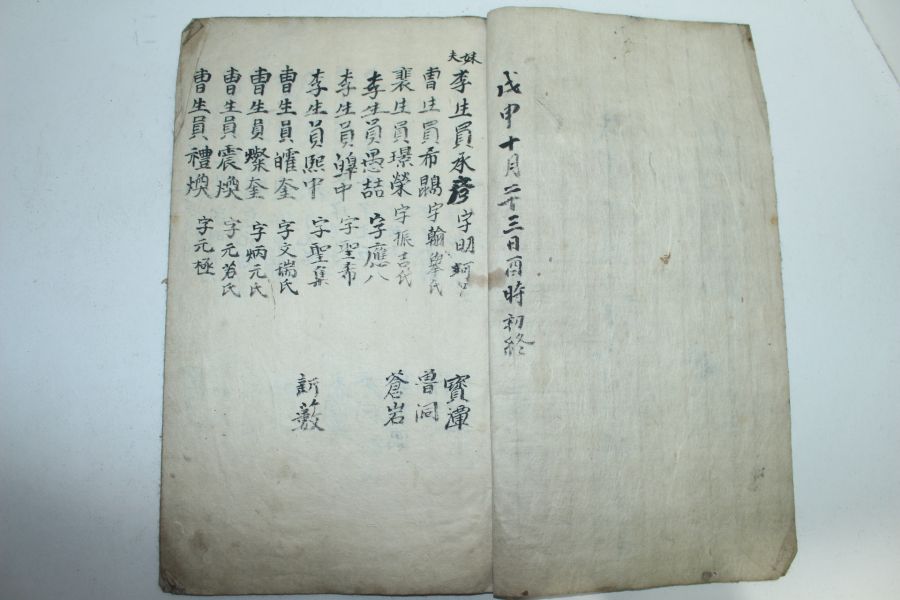 戊申十月二十三日酉時初終
妹夫
李生員承彦 字明 寶潭
曺生員希鵾 字翰擧氏 曽洞
裴生員璟榮 字振吉氏 蒼岩
李生員愚喆 字應八
李生員皡中 字聖希
李生員熙中 字聖集 新藪
曺生員 奎 字文瑞氏
曺生員燦奎 字炳元氏
曺生員震煥 字元若氏
曺生員禮煥 字元極